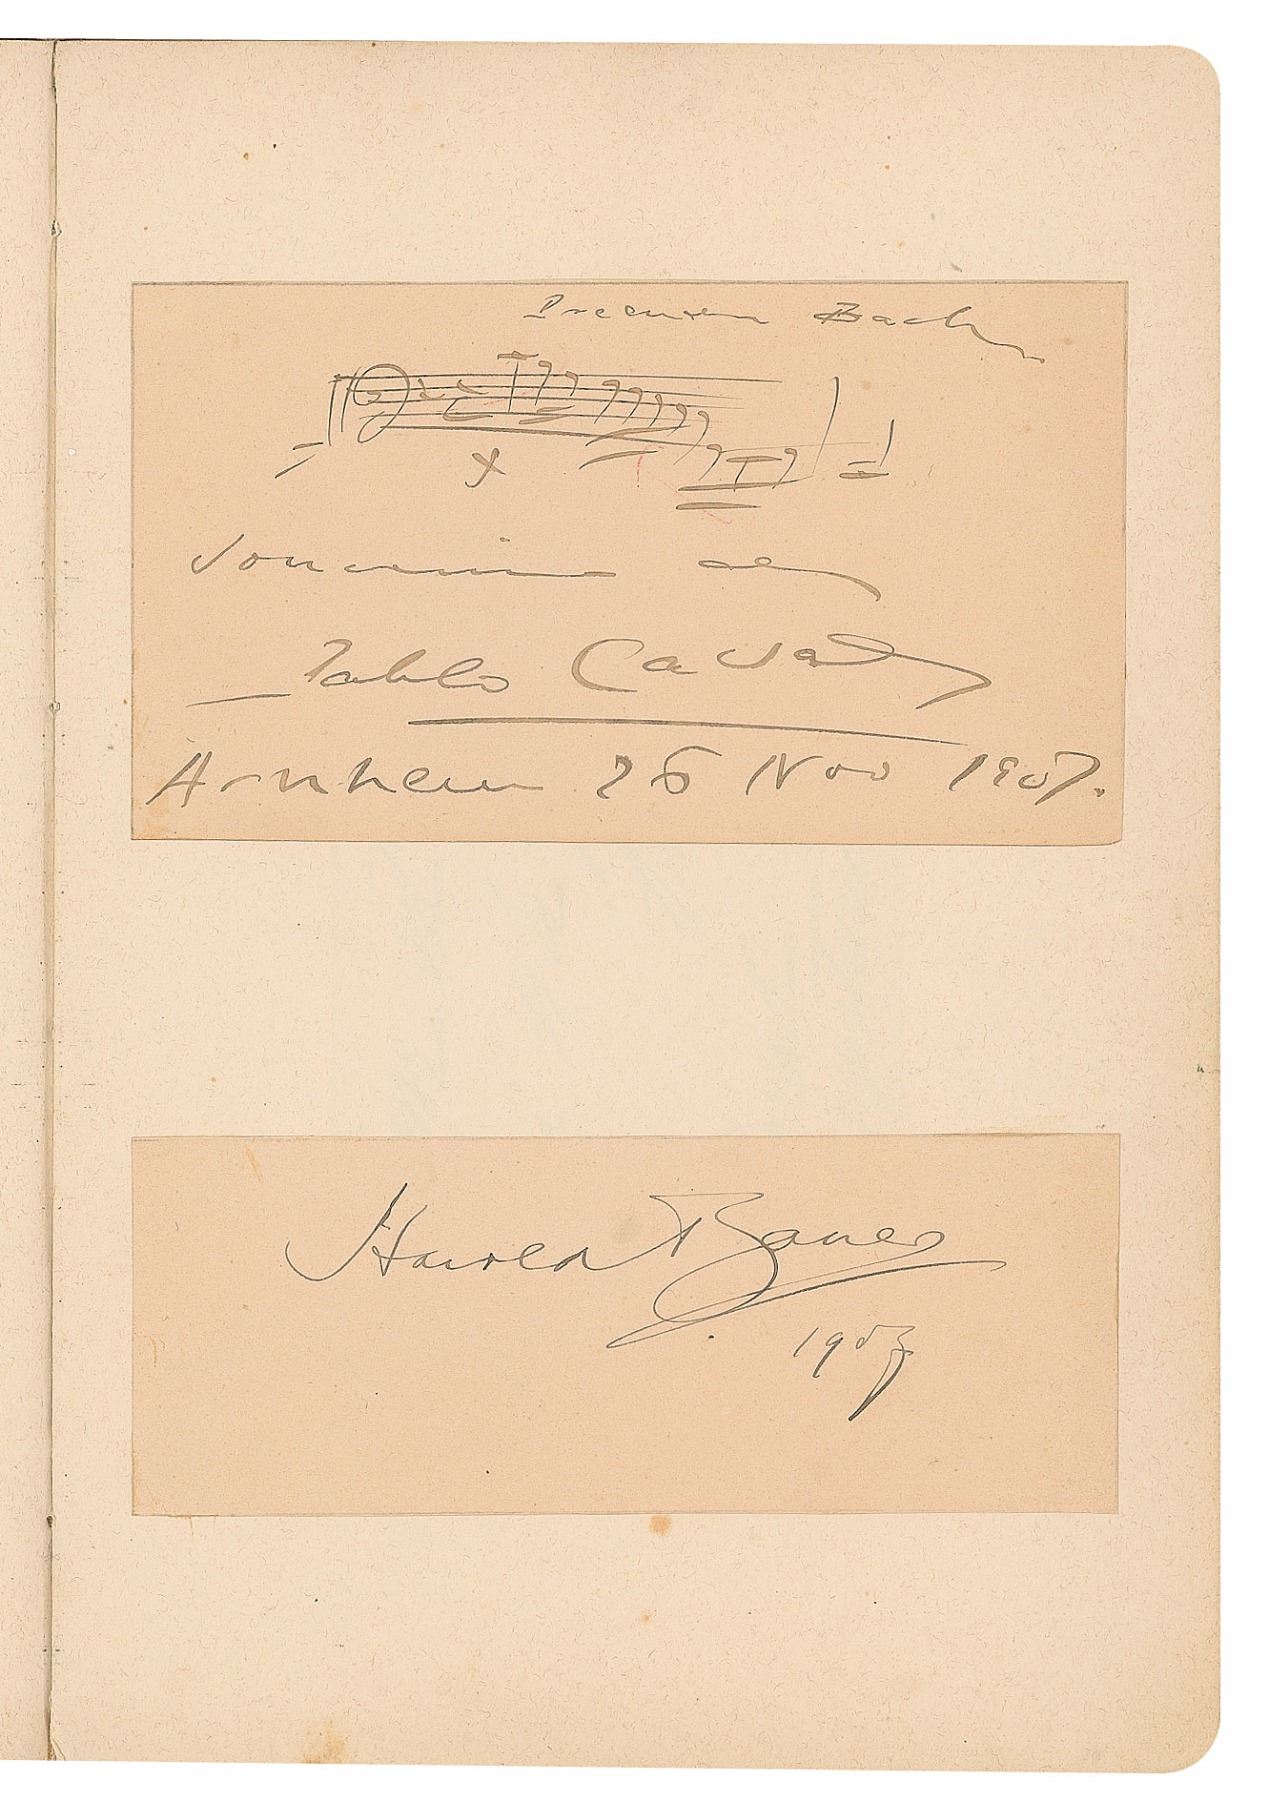 Bach
Souvenir de
Pablo Casals
Arnhem 26 Nov 1907.
Harold Bauer
1907